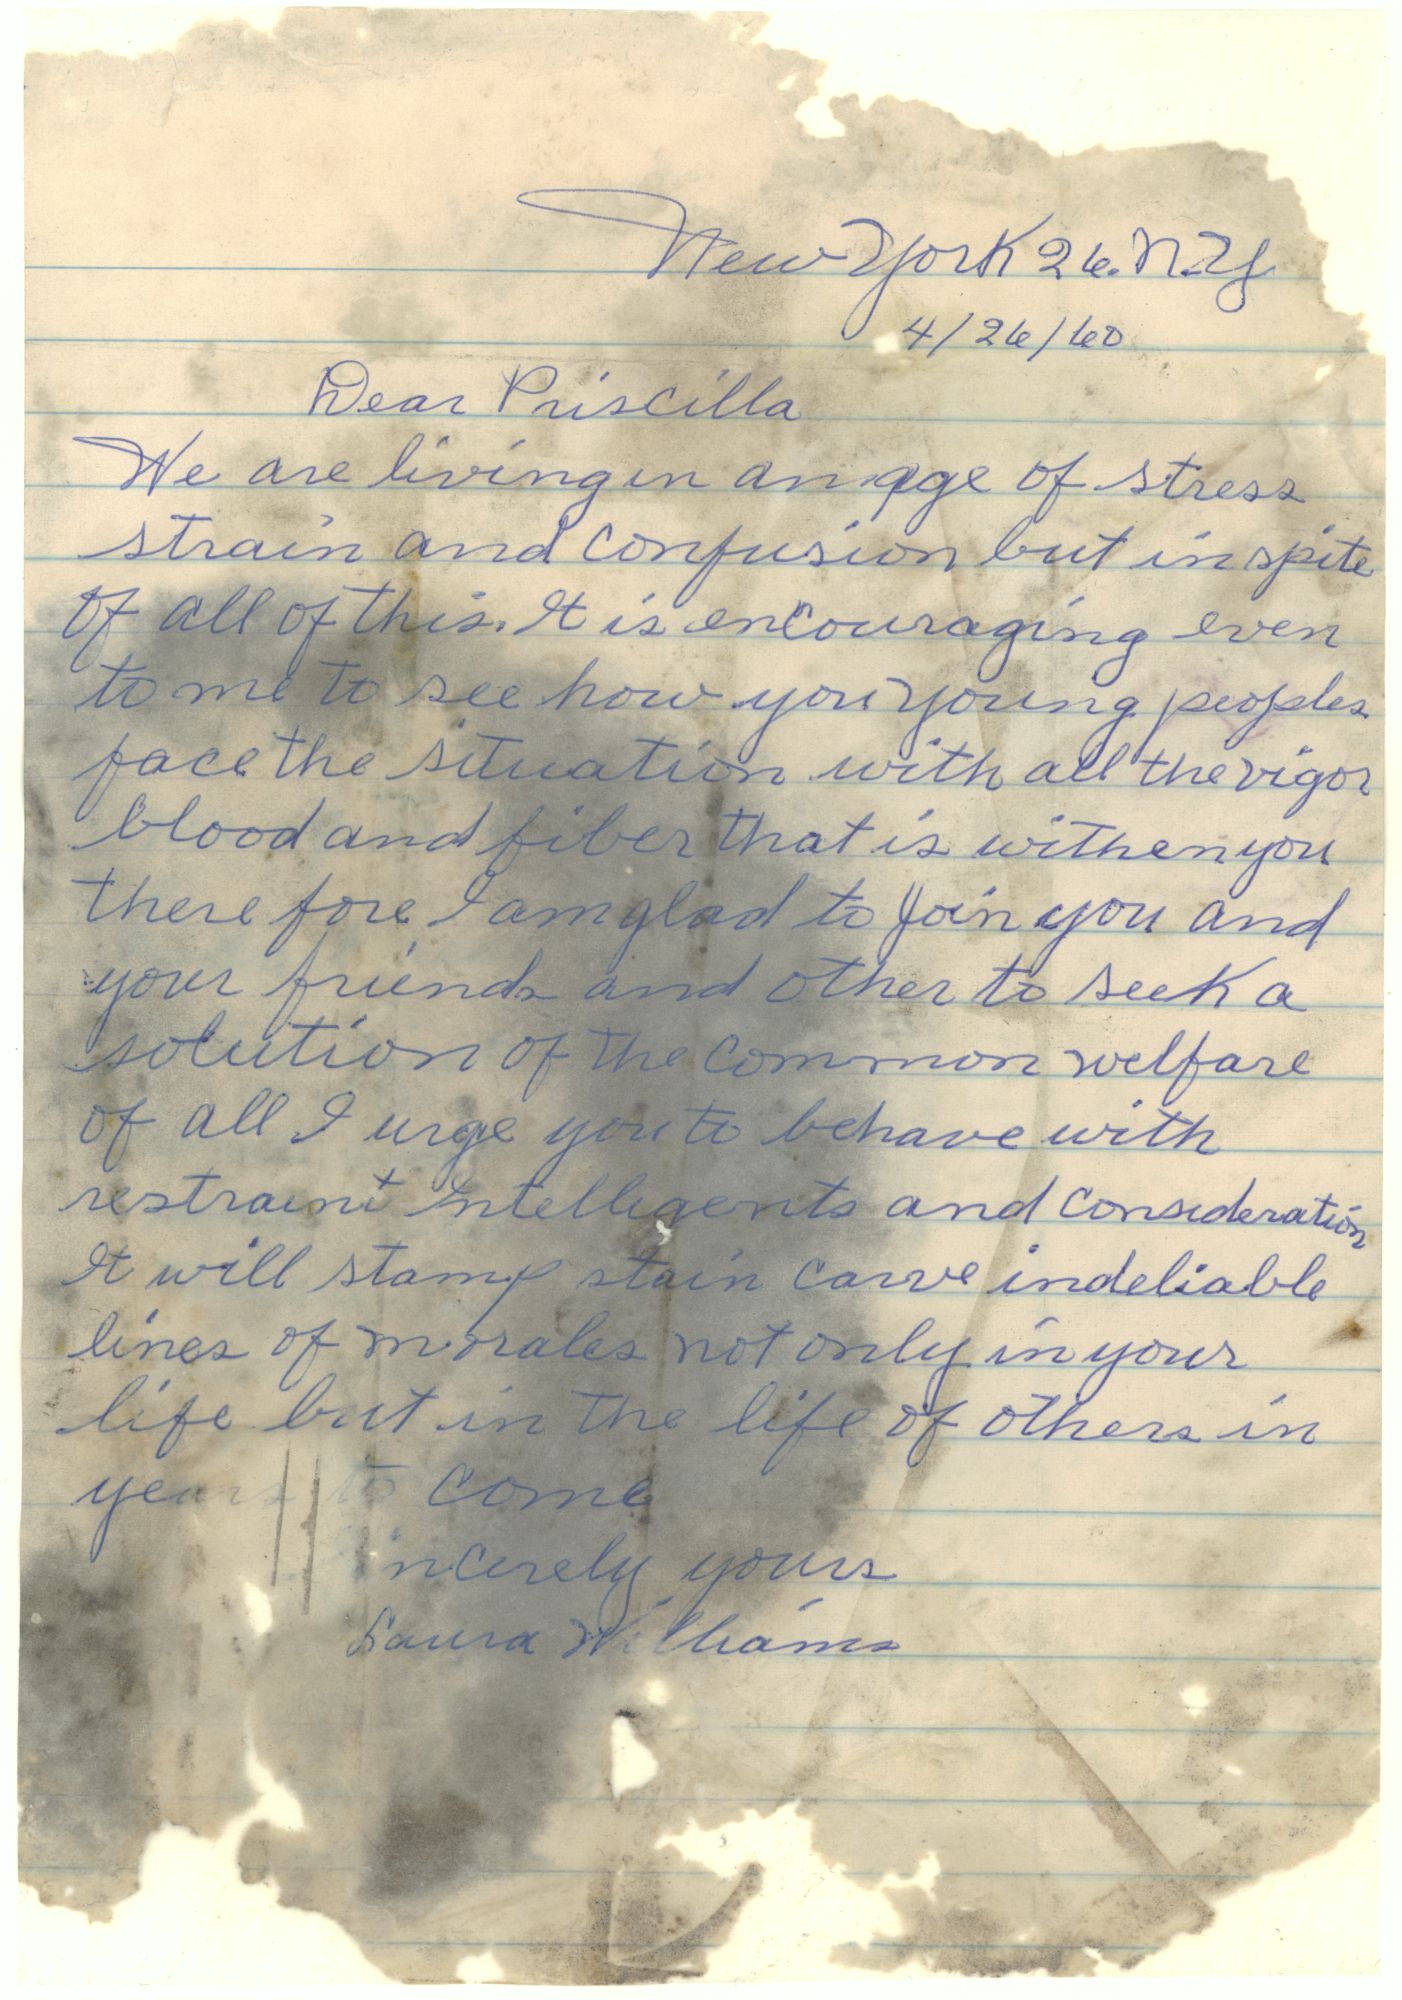 New York 26. N.Y
4/26/60
Dear Priscilla
We are living in an age of stress
strain and confusion but in spite
of all of this. It is encouraging even
to me to see how you young peoples
face the situation with all the vigor
blood and fiber that is withen you
there fore I am glad to Join you and
your friends and other to seek a
solution of the common welfare
of all I urge you to behave with
restraint intelligents and consideration
It will stamp stain carve indeliable
lines of morales not only in your
life but in the life of others in
years to come
incerely yours
Laura Williams